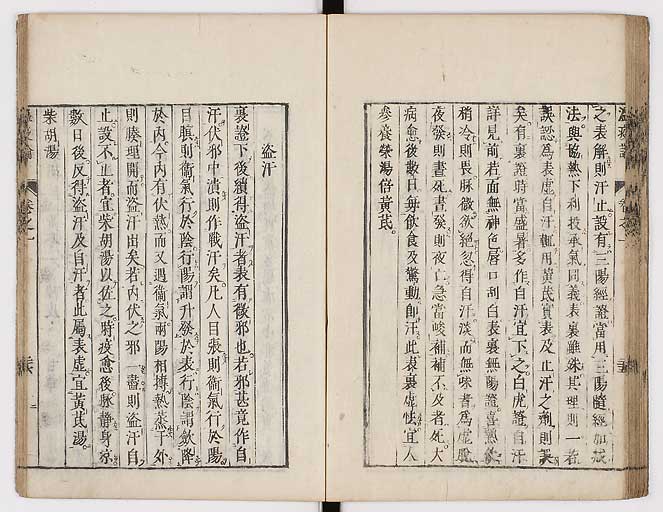 之表解則汗止設有三陽經證當用三陽隨經加減
法與協熱下利投承氣同義表裏雖殊其理則一若
誤認爲表虛自汗輒用黃芪實表及止汗之劑則誤
矣有裏證時當盛暑多作自汗宜下之白虎證自汗
詳見前若面無神色唇口刮白表裏無陽證喜熱飲
稍冷則畏脉微欲絕忽得自汗淡而無味者爲虛脫
夜發則晝死晝發則夜亡急當峻補補不及者死大
病愈後數日每飲食及驚動即汗此表裏虛怯宜人
參養榮湯倍黃芪。
盜汗
裏證下後續得盜汗者表有微邪也若邪甚竟作自
汗伏邪中潰則作戰汗矣凡人目張則衞氣行於陽
目瞑則衞氣行於陰行陽謂升發於表行陰謂斂降
於內今內有伏熱而又遇衞氣兩陽相搏熱蒸于外
則腠理開而盜汗出矣若內伏之邪一盡則盜汗自
止設不止者宜柴胡湯以佐之時疫愈後脉靜身凉
數日後反得盜汗及自汗者此屬表虛宜黃芪湯。
柴胡湯